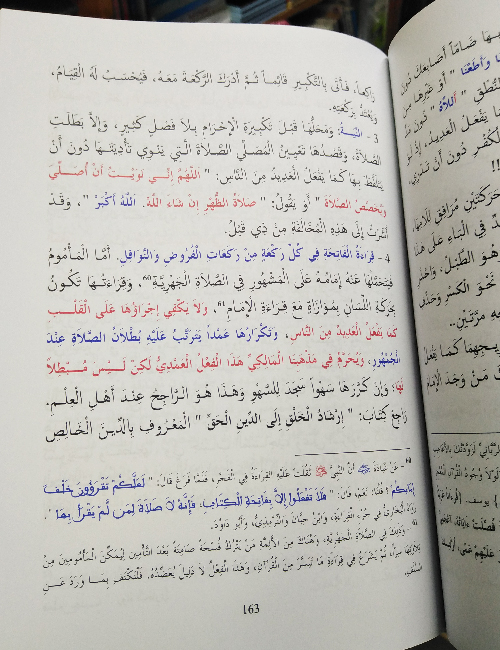 رَاكِعاً، فَأَتَى بِالتَّكْبِيرِ قَائِماً ثُمَّ أَدْرَكَ الرَّكْعَةَ مَعَهُ، فَيُحْسَبُ لَهُ الْقِيَامُ،
وَيُعْتَدُّ بِرَكْعَتِهِ.
3 - النِّيَّةُ: وَمَحَلُّهَا قَبْلَ تَكْبِيرَةِ الْإِحْرَامِ بِلَا فَصْلٍ كَثِيرٍ، وَإِلَّا بَطَلَتِ
الصَّلَاةُ، وَقَصْدُهَا تَعْيِينُ الْمُصَلِّي الصَّلَاةَ الَّتِي يَنْوِي تَأْدِيَتَهَا دُونَ أَنْ
يَتَلَفَّظَ بِهَا كَمَا يَفْعَلُ الْعَدِيدُ مِنَ النَّاسِ: " اللَّهُمَّ إِنِّي نَوَيْتُ أَنْ أُصَلِّيَ
وَيُخَصِّصُ الصَّلَاةَ " أَوْ يَقُولُ: " صَلَاةُ الظُّهْرِ إِنْ شَاءَ اللَّهُ. اللَّهُ أَكْبَرُ "، وَقَدْ
أَشَرْتُ إِلَى هَذِهِ الْمُخَالَفَةِ مِنْ ذِي قَبْلُ.
4 - قِرَاءَةُ الْفَاتِحَةِ فِي كُلِّ رَكْعَةٍ مِنْ رَكَعَاتِ الْفُرُوضِ وَالنَّوَافِلِ. أَمَّا الْمَأْمُومُ
فَيَتَحَمَّلُهَا عَنْهُ إِمَامُهُ عَلَى الْمَشْهُورِ فِي الصَّلَاةِ الْجَهْرِيَّةِ60، وَقِرَاءَتُهَا تَكُونُ
بِحَرَكَةِ اللِّسَانِ بِمُوَازَاةٍ مَعَ قِرَاءَةِ الْإِمَامِ61، وَلَا يَكْفِي إِجْرَاؤُهَا عَلَى الْقَلْبِ
كَمَا يَفْعَلُ الْعَدِيدُ مِنَ النَّاسِ. وَتَكْرَارُهَا عَمْداً يَتَرَتَّبُ عَلَيْهِ بُطْلَانُ الصَّلَاةِ عِنْدَ
الْجُمْهُورِ، وَيَحْرُمُ فِي مَذْهَبِنَا الْمَالِكِيِّ هَذَا الْفِعْلُ الْعَمْدِيُّ لَكِنْ لَيْسَ مُبْطِلاً
لَهَا؛ وَإِنْ كَرَّرَهَا سَهْواً سَجَدَ لِلسَّهْوِ وَهَذَا هُوَ الرَّاجِحُ عِنْدَ أَهْلِ الْعِلْمِ.
رَاجِعْ كِتَابَ: " إِرْشَادُ الْخَلْقِ إِلَى الدِّينِ الْحَقِّ " الْمَعْرُوفَ بِالدِّينِ الْخَالِصِ
60 - عَنْ عُبَادَةَ أَنَّ النَّبِيَّ ﷺ ثَقُلَتْ عَلَيْهِ الْقِرَاءَةُ فِي الْفَجْرِ، فَلَمَّا فَرَغَ قَالَ: " لَعَلَّكُمْ تَقْرَؤُونَ خَلْفَ
إِمَامِكُمْ " قُلْنَا: نَعَمْ، قَالَ: " فَلَا تَفْعَلُوا إِلَّا بِفَاتِحَةِ الْكِتَابِ، فَإِنَّهُ لَا صَلَاةَ لِمَنْ لَمْ يَقْرَأْ بِهَا ".
رَوَاهُ الْبُخَارِيُّ فِي جُزْءِ الْقِرَاءَةِ، وَابْنُ حِبَّانَ وَالتِّرْمِذِيُّ، وَأَبُو دَاوُدَ.
61 وَذَلِكَ فِي الصَّلَاةِ الْجَهْرِيَّةِ، وَهُنَاكَ مِنَ الْأَئِمَّةِ مَنْ يَتْرُكُ فُسْحَةً صَامِتَةً بَعْدَ التَّأْمِينِ لِيُمَكِّنَ الْمَأْمُومِينَ مِنْ
تِلَاوَتِهَا سِرّاً، ثُمَّ يَشْرَعُ فِي قِرَاءَةِ مَا تَيَسَّرَ مِنَ الْقُرْآنِ، وَهَذَا الْفِعْلُ لَا دَلِيلَ يُعَضِّدُهُ. فَلْنَكْتَفِ بِمَا وَرَدَ عَنِ
السَّلَفِ.
163